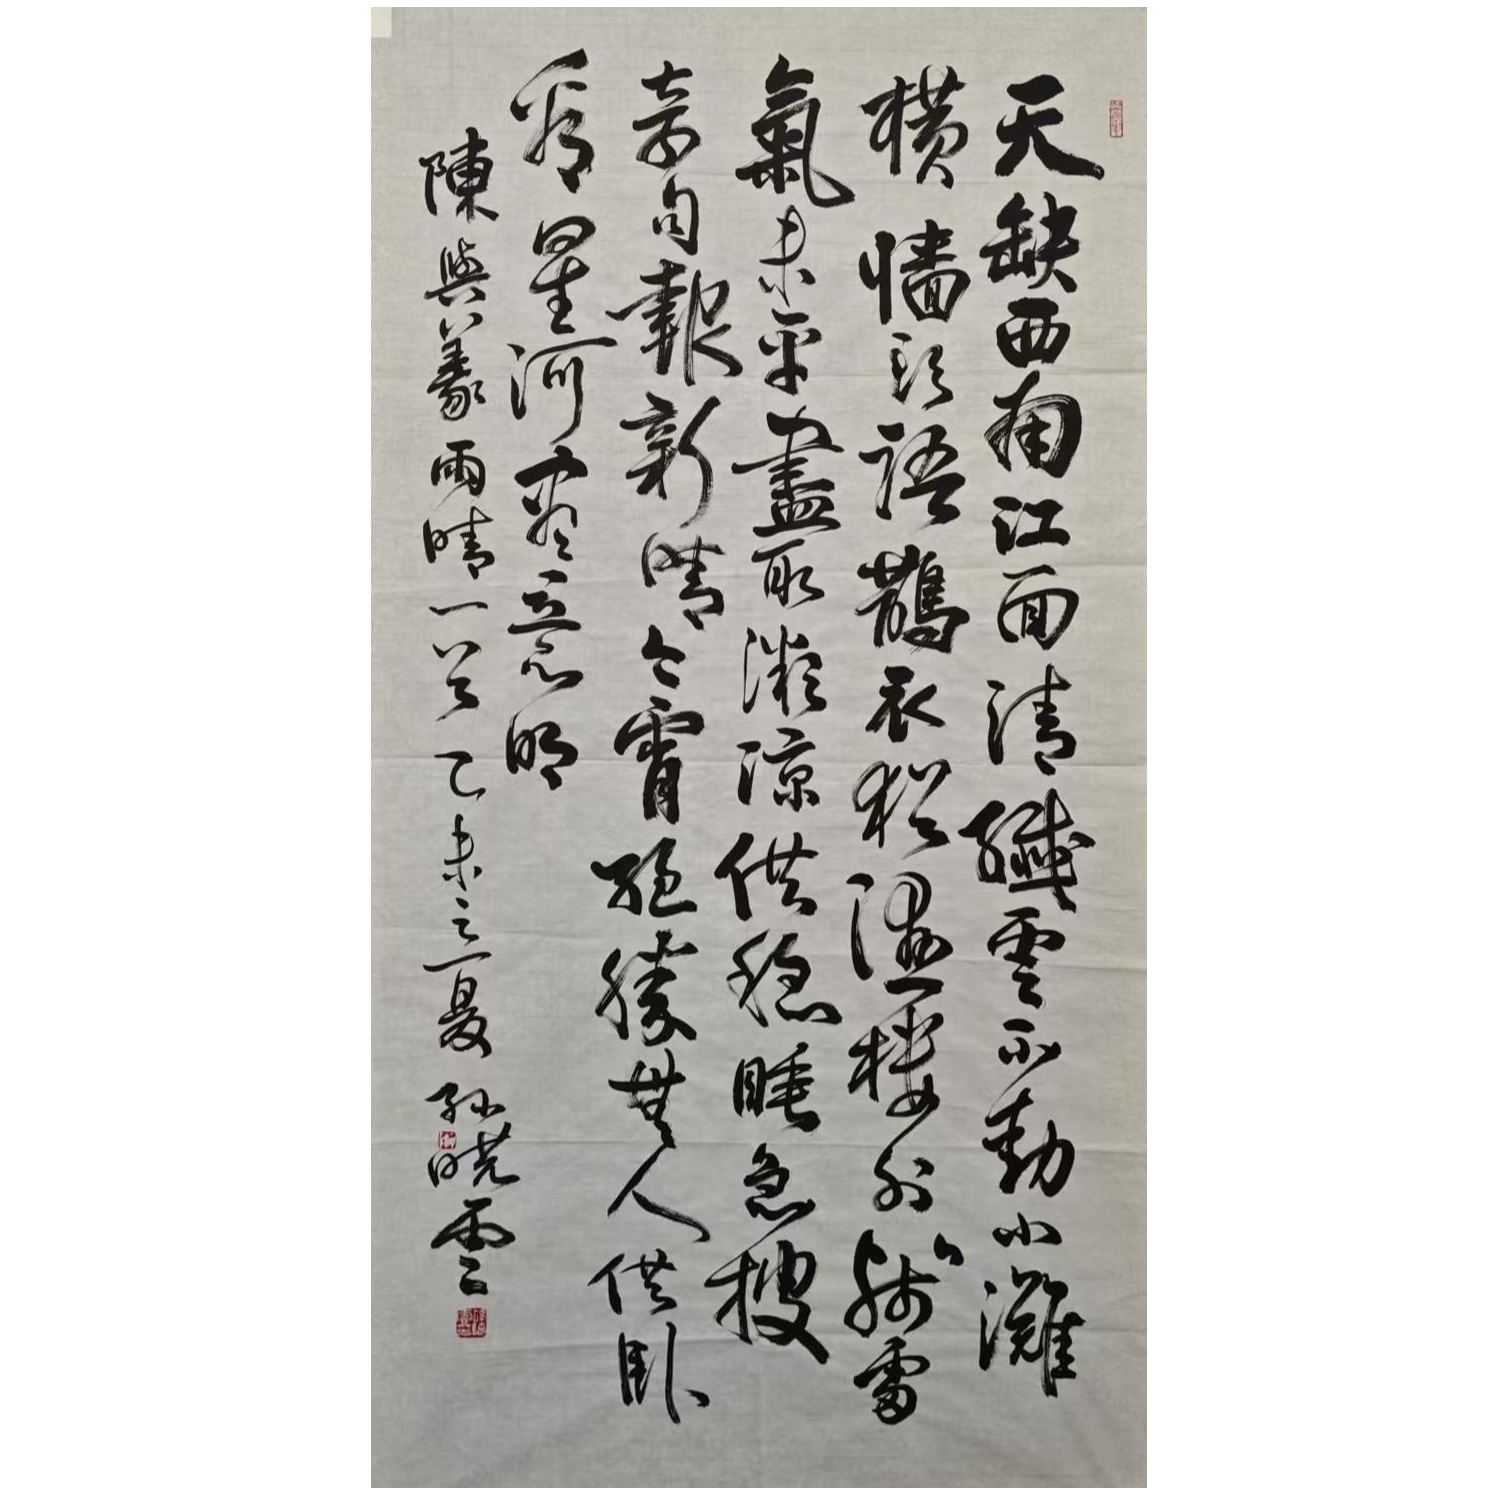 天缺西南江面清纖雲不動小灘
橫墻頭語鵲衣猶濕樓外殘雷
氣未平盡取微涼供穩睡急搜
奇句報新晴今宵絕勝無人供臥
看星河盡意明
陳與義雨晴一首乙未之夏孫曉雲